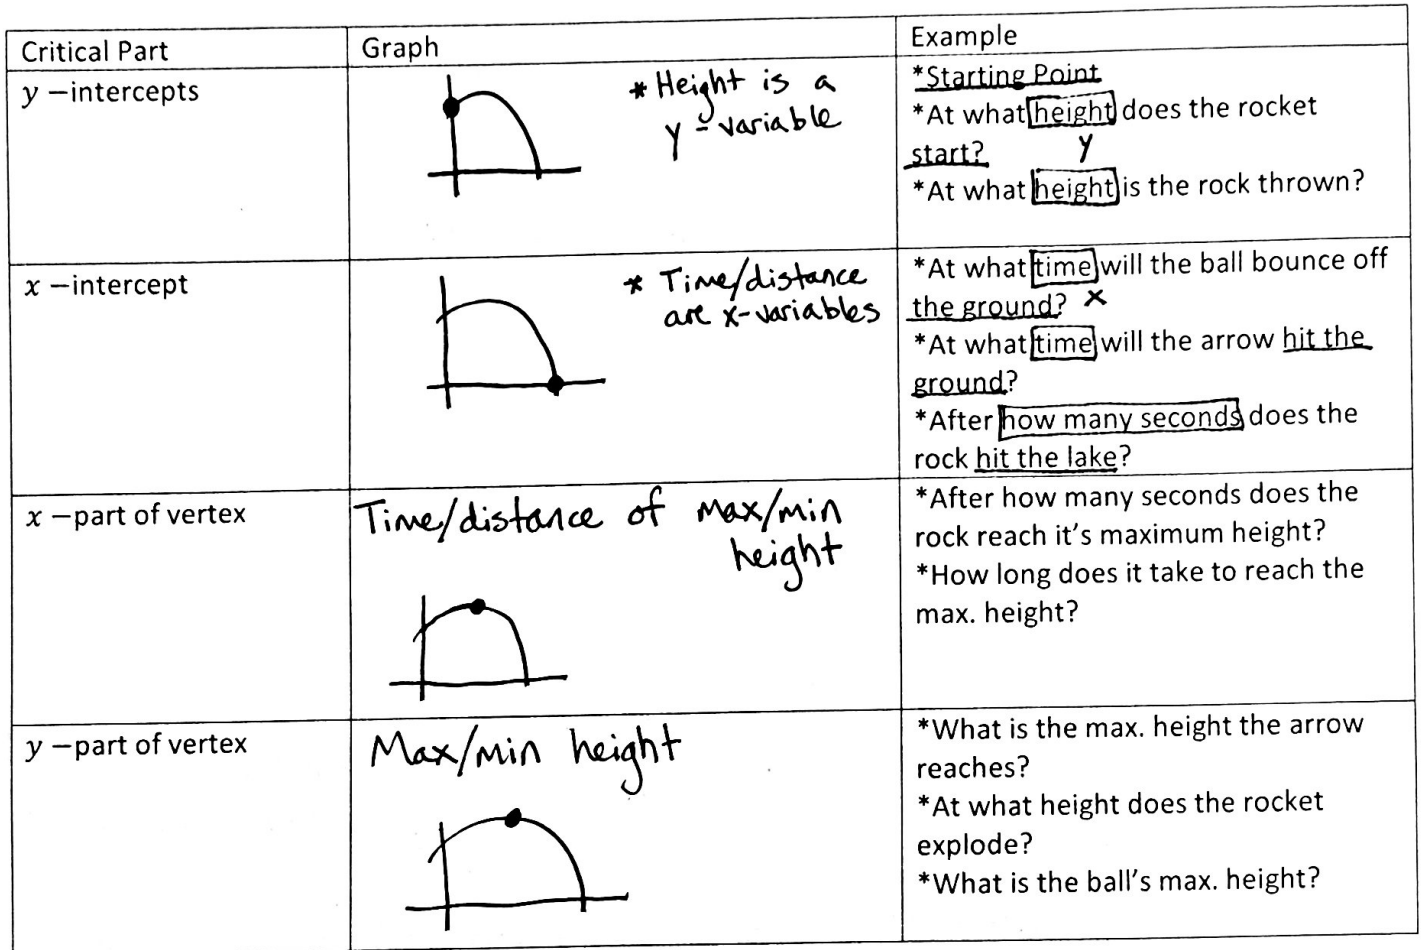 Critical Part
Graph
Example
y –intercepts
* Height is a
y - variable
*Starting Point
*At what height does the rocket
start?
y
*At what height is the rock thrown?
x –intercept
* Time/distance
are x-variables
*At what time will the ball bounce off
the ground? x
*At what time will the arrow hit the
ground?
*After how many seconds does the
rock hit the lake?
x –part of vertex
Time/distance of max/min
height
*After how many seconds does the
rock reach it's maximum height?
*How long does it take to reach the
max. height?
y –part of vertex
Max/min height
*What is the max. height the arrow
reaches?
*At what height does the rocket
explode?
*What is the ball's max. height?